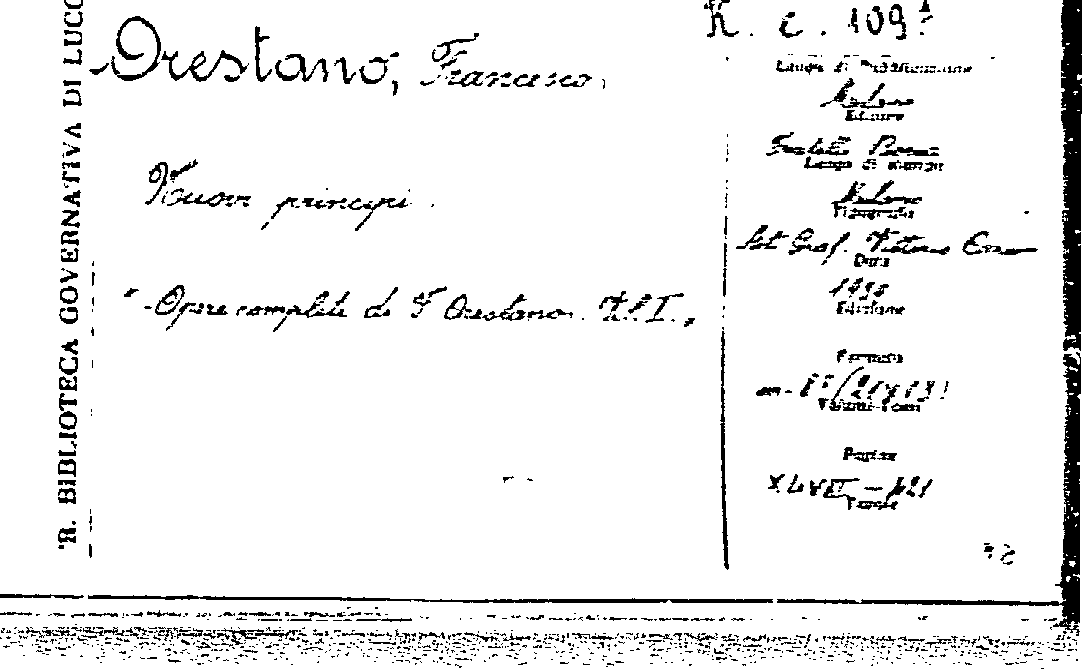 R. BIBLIOTECA GOVERNATIVA DI LUCC
Orestano, Francesco,
Nuovi principi.
"-Opere complete di F Orestano.
K. c. 109
Luogo di Pubblicazione
Milano
Editore
Fratelli Bocca
Luogo di stampa
Milano
Tipografia
Ist Graf.
Data
Edizione
Formato
Volumi-Tomi
Pagine
XLVIII - 421
Tavole